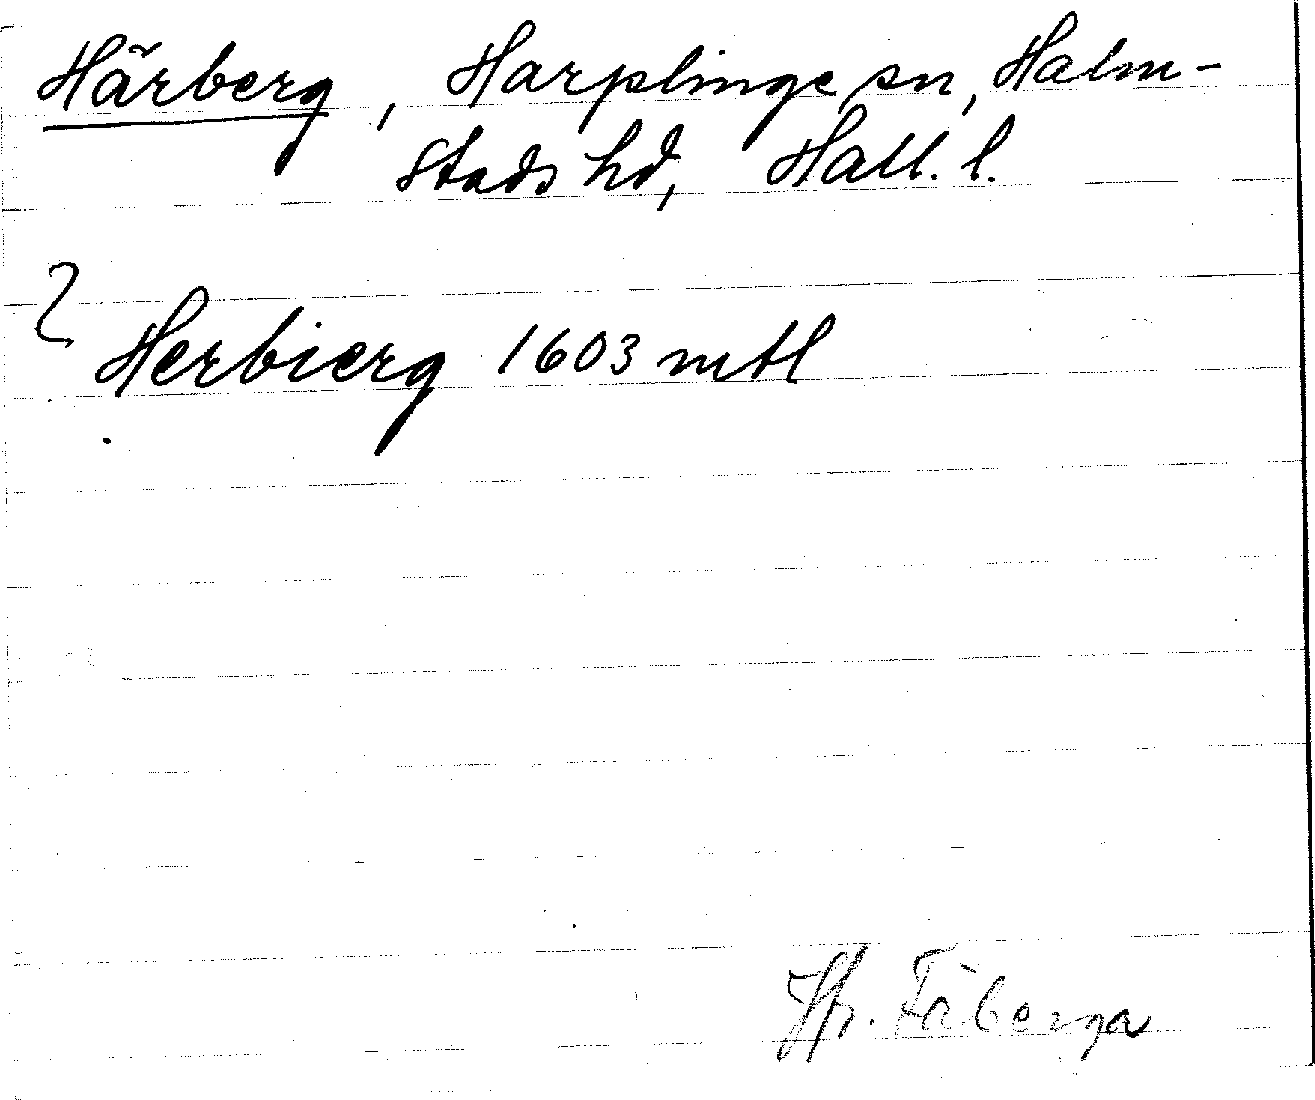 Härberg, Harplinge sn, Halm-
stads hd, Hall. l.
Herbierg 1603 mtl
Jfr. Fäberga